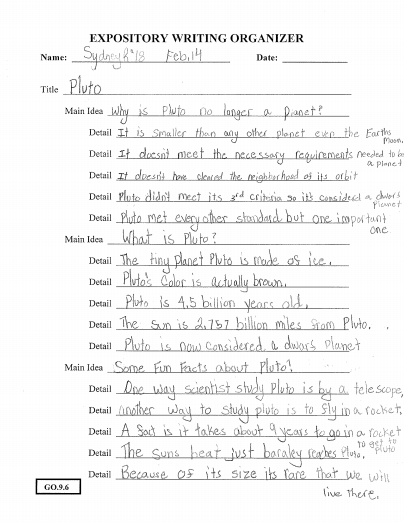 EXPOSITORY WRITING ORGANIZER
Name: Sydney #18 Feb.14 Date:
Title Pluto
Main Idea Why is Pluto no longer a Planet?
Detail It is smaller than any other planet even the Earths Moon.
Detail It doesn't meet the necessary requirements needed to be a planet
Detail It doesn't have cleared the neighborhood of its orbit
Detail Pluto didn't meet its 3rd criteria so it's considered a dwarf Planet
Detail Pluto met every other standard but one important one
Main Idea What is Pluto?
Detail The tiny Planet Pluto is made of ice.
Detail Pluto's Color is actually brown.
Detail Pluto is 4.5 billion years old.
Detail The Sun is 2.757 billion miles from Pluto.
Detail Pluto is now considered a dwarf Planet
Main Idea Some Fun Facts about Pluto!
Detail One way scientist study Pluto is by a telescope,
Detail Another way to study pluto is to fly in a rocket.
Detail A fact is it takes about 9 years to go in a rocket to get to Pluto
Detail The Suns heat just baraley reaches Pluto.
Detail Because of its size its rare that we will live there.
GO.9.6